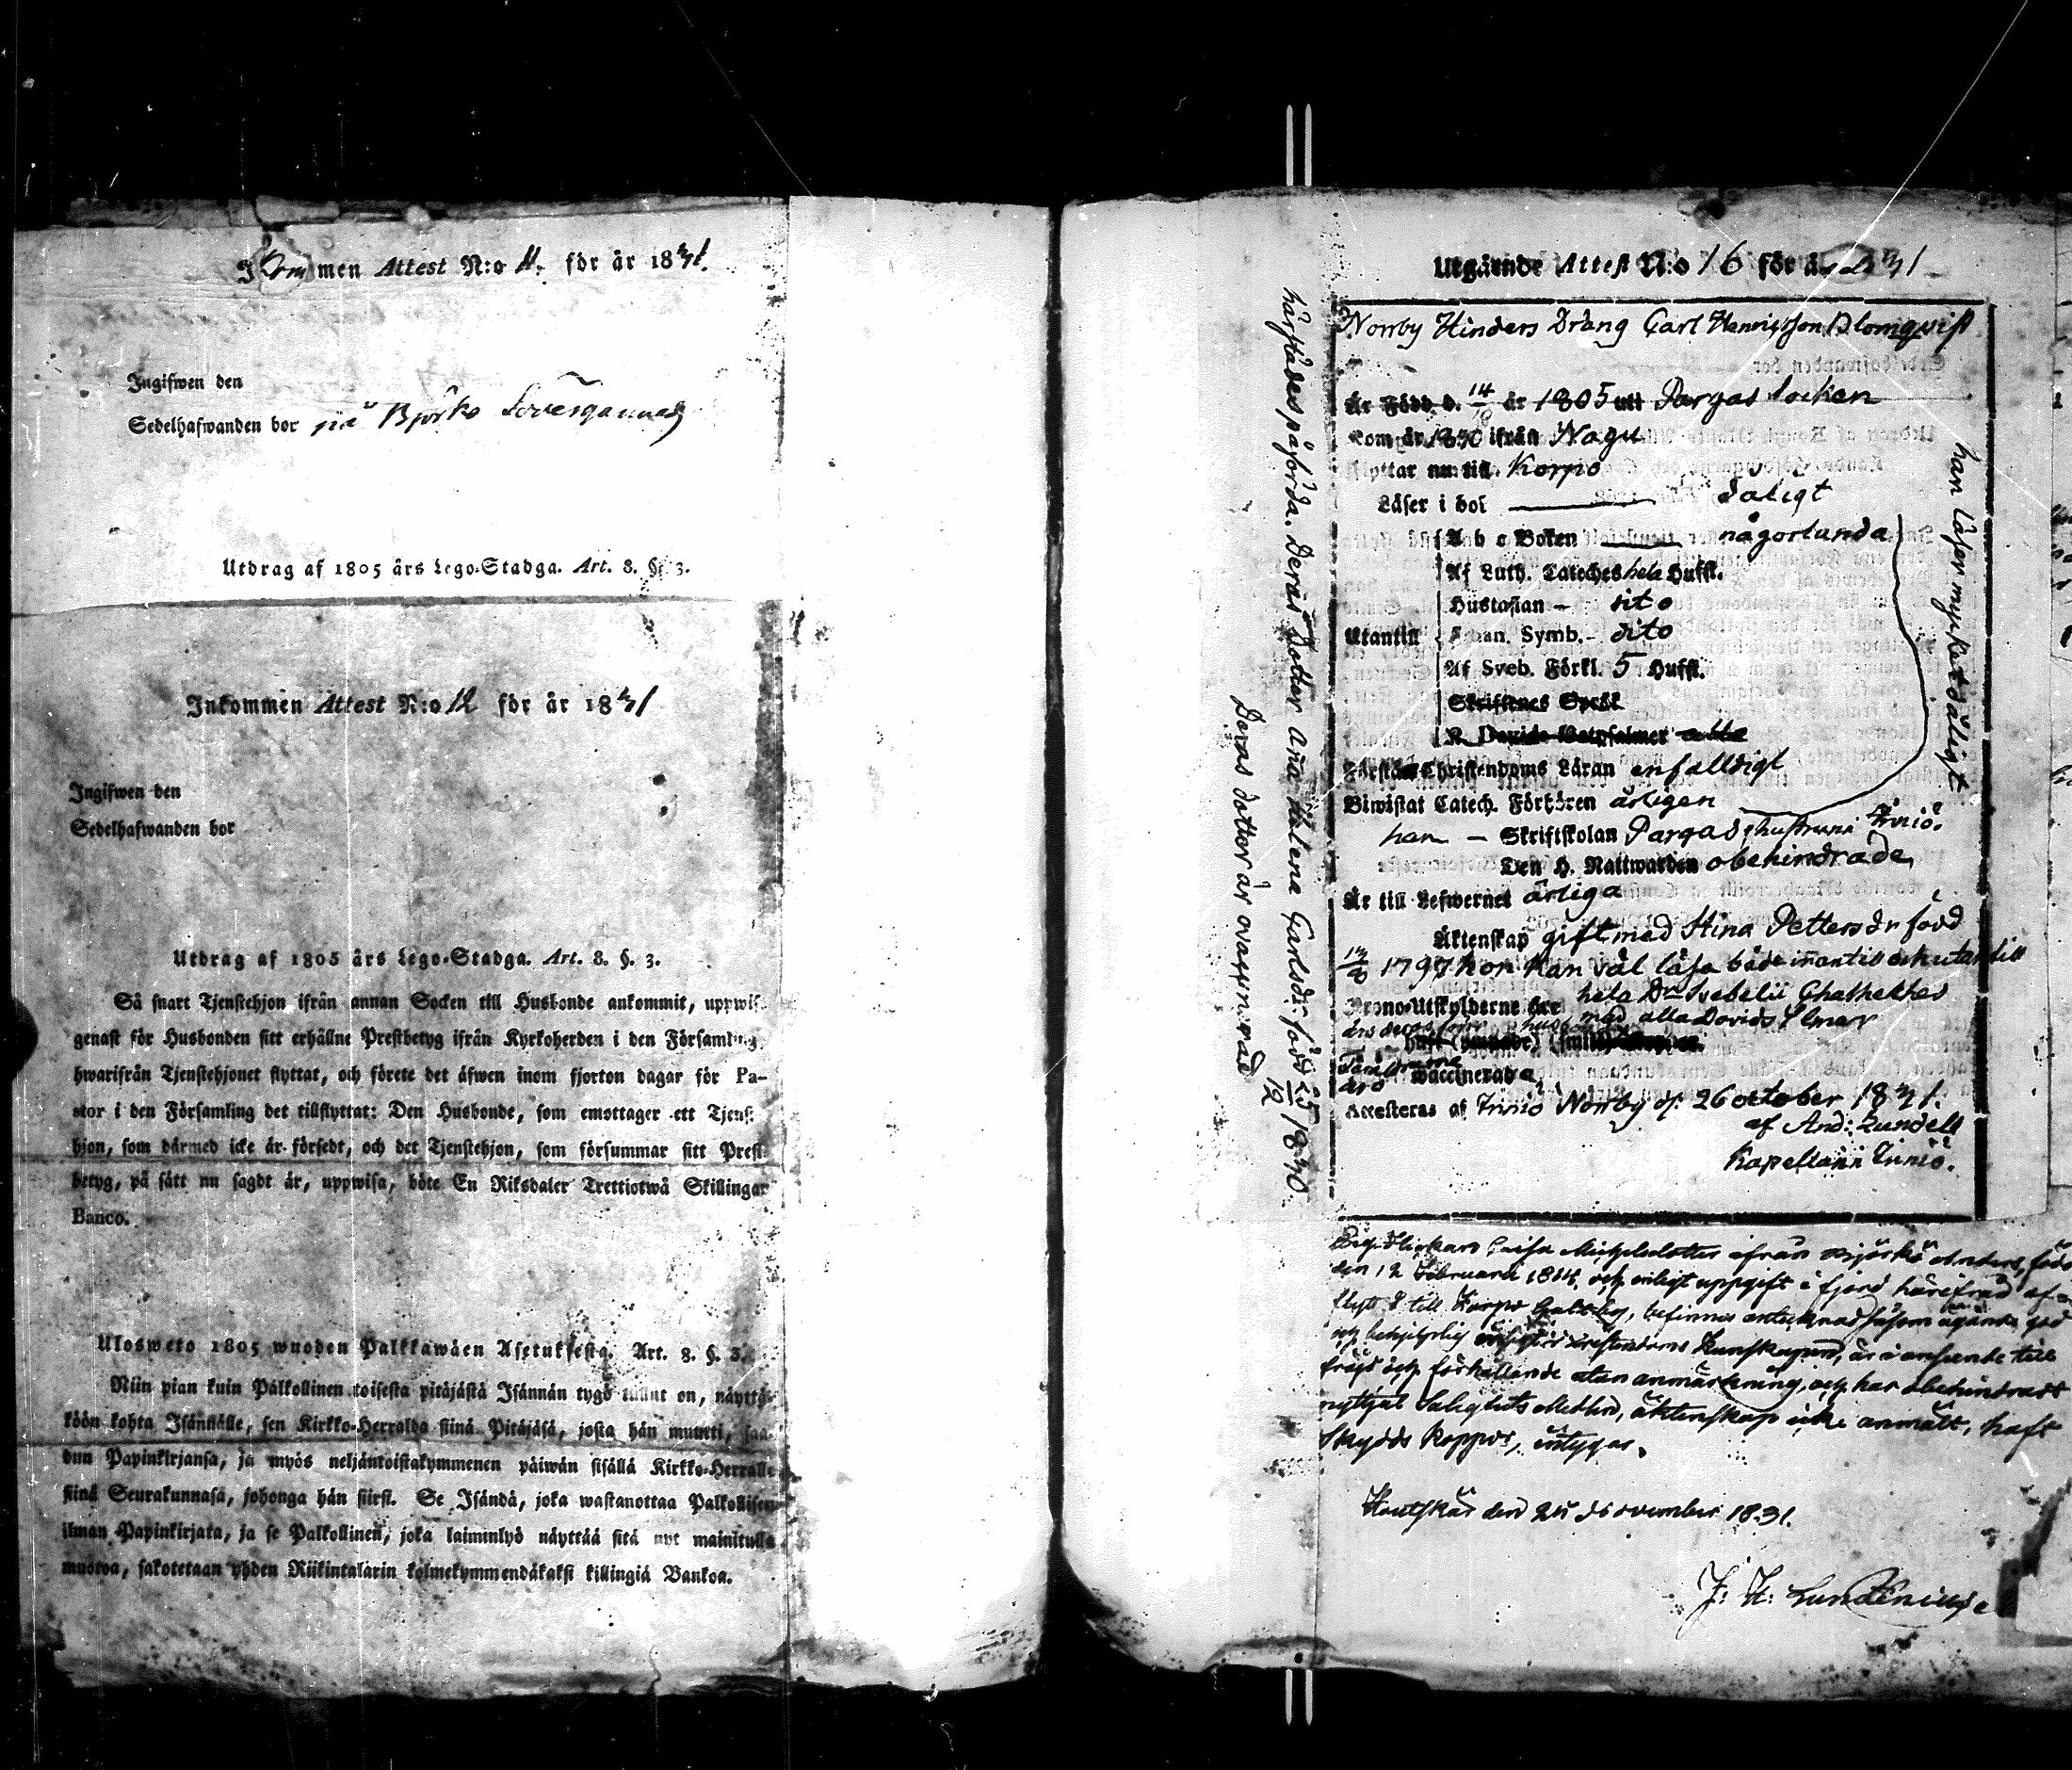 Inkommen Attest N:o 11. för år 1831.
Ingifwen den
Sedelhafwanden bor på Björkö
Utdrag af 1805 års Lego-Stadga. Art. 8. §. 3.
Inkommen Attest N:o 12 för år 1831
Ingifwen den
Sedelhafwanden bor
Utdrag af 1805 års Lego-Stadga. Art. 8. §. 3.
Så snart Tjenstehjon ifrån annan Socken till Husbonde ankommit, uppwise
genast för Husbonden sitt erhållne Prestbetyg ifrån Kyrkoherden i den Församling,
hwarifrån Tjenstehjonet flyttat, och förete det äfwen inom fjorton dagar för Pa-
stor i den Församling det tillflyttat: Den Husbonde, som emottager ett Tjenste-
hjon, som därmed icke är försedt, och det Tjenstehjon, som försummar sitt Prest-
betyg, på sätt nu sagdt är, uppwisa, böte En Riksdaler Trettiotwå Skillingar
Banco.
Ulosweto 1805 wuoden Palkkawäen Asetuksesta. Art. 8. §. 3.
Niin pian kuin Pälkollinen toisesta pitäjästä Isännän tygö tullut on, näyttä-
köön kohta Isännälle, sen Kirkko-Herralda siinä Pitäjäsä, josta hän muutti, saa-
dun Papinkirjansa, ja myös neljäntoistakymmenen päiwän sisällä Kirkko-Herralle
siinä Seurakunnasa, johonga hän siirsi. Se Isändä, joka wastanottaa Palkollisen
ilman Papinkirjata, ja se Palkollinen, joka laiminlyö näyttää sitä nyt mainitulla
muotoa, sakotetaan yhden Riikintalarin kolmekymmendäkaksi killingiä Bankoa.
Utgående Attest N:o 16 för år 1831
Norrby Hinders Dräng Carl Henricsson Blomqvist
Är Född d. 14/10 år 1805 uti Pargas Socken
kom år 1830 ifrån Nagu
flyttar nu till Korpo
Läser i bok dåligt
A b c Boken någorlunda
Af Luth. Cateches hela Hufst.
Hustaflan – dito
Utantill Athan. Symb. – dito
Af Sveb. Förkl. 5 Hufst.
Skriftenes Språk
K. Davids Botpsalmer
Förstår Christendoms Läran enfalldigt
Biwistat Catech. Förhören årligen
han – Skriftskolan Pargas, hustrun i Iniö.
Den H. Nattwarden obehindrade
Är till Lefwernet ärliga
Äktenskap giftmed Stina Pettersdr född
1797 hon kan väl läsa både innantill och utantill
hela Dr Svebelii
Krono-Utskylderne äro
med alla Davids
äro waccinerade
Attesteras af Iniö Norrby d. 26 october 1831.
af And: Lundell
Kapellan i Iniö.
han läser mycket dåligt
härstädes påförda. Deras Dotter Anna Helena Carlsdr: född 25/12 1830.
Deras dotter är ovaccinerad
Pigo Flickan Caisa Michelsdotter ifrån Björkö Anders, född
den 12 Februarii 1814, och enligt uppgift i fjord härifrån af-
flytt till Korpo Galtby, befinnes antecknad såsom ägande god
och behjelplig christendoms kunskapen, är i anseende till
fräjd och förhållande utan anmärkning, och har obehindradt
nyttjat Salighets Medlen, äktenskap icke anmält, haft
skydds koppor, intygar.
Houtskär den 24 November 1831.
J: H: Lundenius